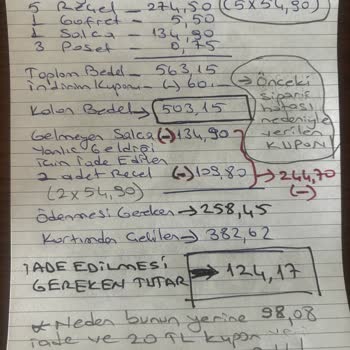 5 Reçel — 274,50 (5x54,90)
1 Gofret — 5,50
1 Salça — 134,90
3 Poşet — 0,75
Toplam Bedel — 563,15
indirim Kuponu — (-) 60.
Kalan Bedel 503,15
→ Önceki sipariş hatası nedeniyle verilen KUPON
Gelmeyen Salça (-) 134,90
Yanlış Geldiği
için İade Edilen
2 adet Reçel (-) 109,80 → 244,70
(2x54,90) (-)
Ödenmesi Gereken → 258,45
Kartımdan Çekilen → 382,62
İADE EDİLMESİ
GEREKEN TUTAR → 124,17
* Neden bunun yerine 98,08
iade ve 20 TL kupon